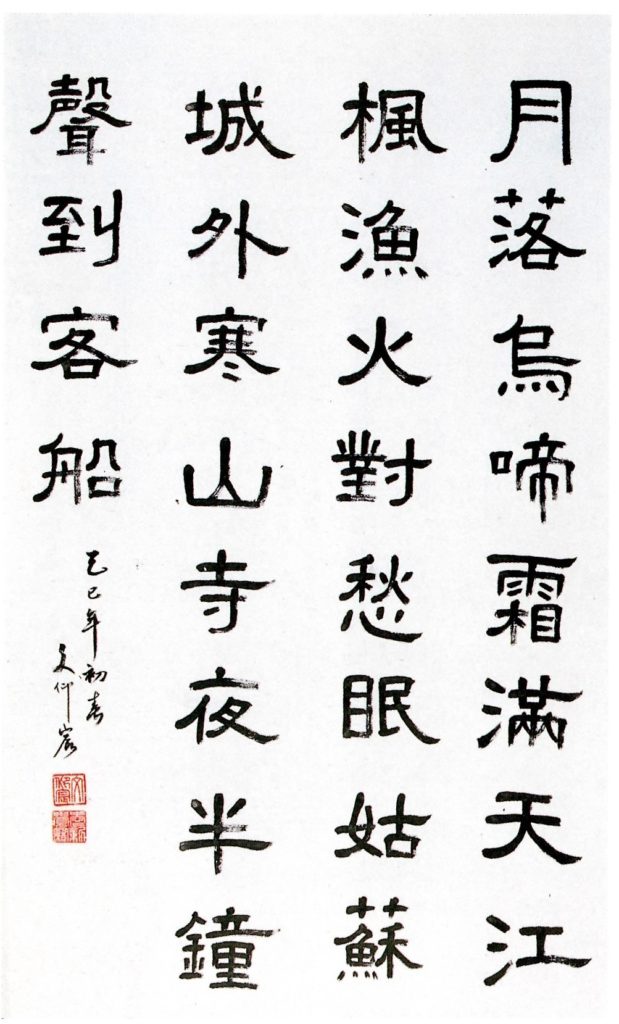 月落烏啼霜滿天江
楓漁火對愁眠姑蘇
城外寒山寺夜半鐘
聲到客船
己巳年初春
文仰宸